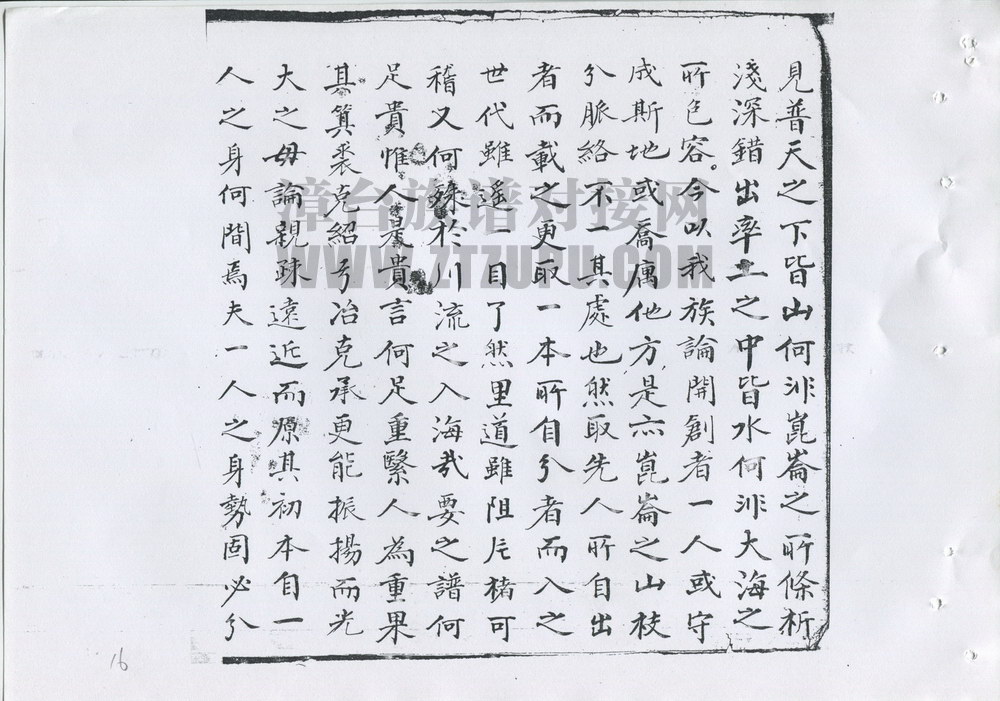 見普天之下皆山何非崑崙之所條析
淺深錯出率土之中皆水何非大海之
所包容。今以我族論開創者一人或守
成斯地或喬寓他方是亦崑崙之山枝
分脈絡不一其處也然取先人所自出
者而載之更取一本所自分者而入之
世代雖遥一目了然里道雖阻片楮可
稽又何殊於川流之入海哉要之譜何
足貴惟人最貴言何足重繄人為重果
其箕裘克紹弓冶克承更能振揚而光
大之毋論親疎遠近而原其初本自一
人之身何間焉夫一人之身勢固必分
漳台族谱对接网
WWW.ZTZUPU.COM
16